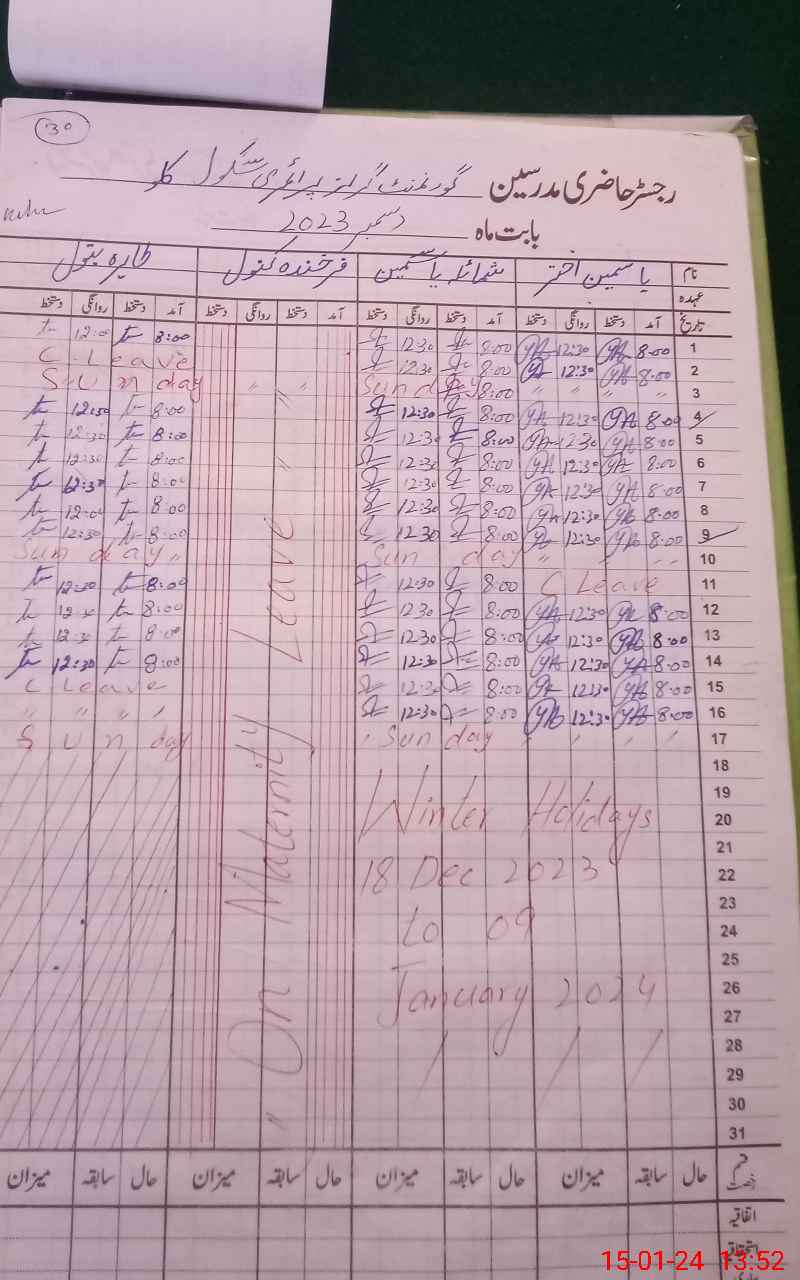 30
رجسٹر حاضری مدرسین گورنمنٹ گرلز پرائمری سکول
بابت ماہ دسمبر 2023
نام یاسمین اختر شمائلہ یاسمین فرخندہ کنول طاہرہ بتول
عہدہ
تاریخ آمد دستخط روانگی دستخط آمد دستخط روانگی دستخط آمد دستخط روانگی دستخط آمد دستخط روانگی دستخط
1 8:00 YA 12:30 YA 8:00 12:30 8:00 12:00
2 8:00 YA 12:30 YA 8:00 12:30 C Leave
3 " " " " Sunday 8:00 " " Sunday
4 8:00 YA 12:30 YA 8:00 12:30 8:00 12:30
5 8:00 YA 12:30 YA 8:00 12:30 8:00 12:30
6 8:00 YA 12:30 YA 8:00 12:30 8:00 12:30
7 8:00 YA 12:30 YA 8:00 12:30 8:00 12:30
8 8:00 YA 12:30 YA 8:00 12:30 8:00 12:00
9 8:00 YA 12:30 YA 8:00 12:30 8:00 12:30
10 " " " Sun day Sun day "
11 C Leave 8:00 12:30 8:00 12:30
12 8:00 YA 12:30 YA 8:00 12:30 8:00 12:30
13 8:00 YA 12:30 YA 8:00 12:30 8:00 12:30
14 8:00 YA 12:30 YA 8:00 12:30 8:00 12:30
15 8:00 YA 12:30 YA 8:00 12:30 C Leave
16 8:00 YA 12:30 YA 8:00 12:30 " " " "
17 " " " Sun day Sun day
On Maternity Leave
18
19
20 Winter Holidays
21
22 18 Dec 2023
23
24 to 09
25
26 January 2024
27
28
29
30
31
قسم رخصت حال سابقہ میزان حال سابقہ میزان حال سابقہ میزان حال سابقہ میزان
اتفاقیہ
استحقاقیہ
15-01-24 13:52